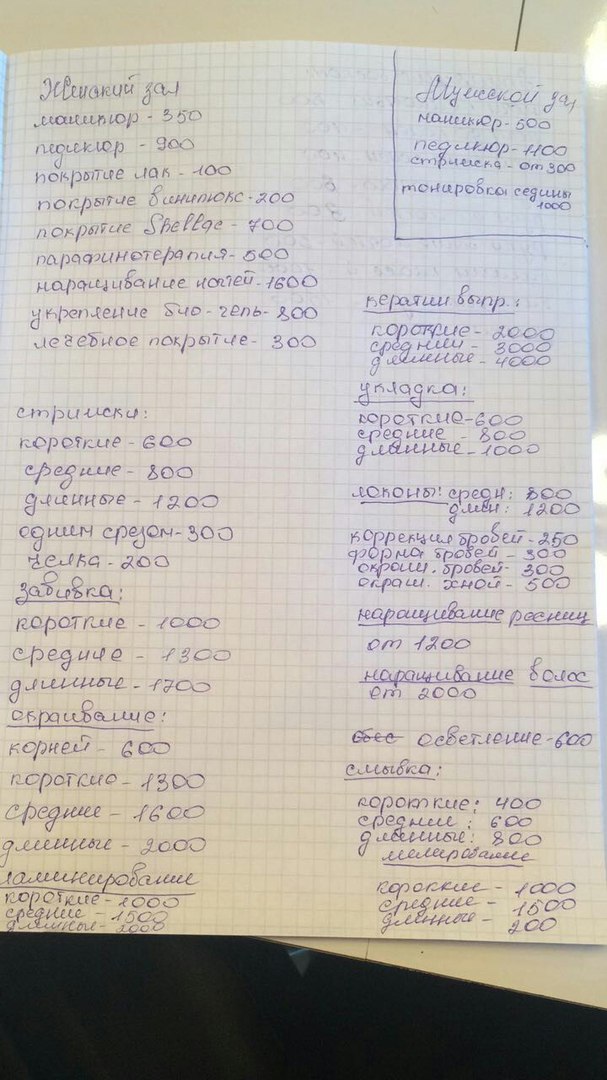 Женский зал
маникюр - 350
педикюр - 900
покрытие лак - 100
покрытие винилюкс - 200
покрытие Shellac - 700
парафинотерапия - 500
наращивание ногтей - 1600
укрепление био-гель - 800
лечебное покрытие - 300
стрижки:
короткие - 600
средние - 800
длинные - 1200
одним срезом - 300
челка - 200
завивка:
короткие - 1000
средние - 1300
длинные - 1700
окрашивание:
корней - 600
короткие - 1300
средние - 1600
длинные - 2000
ламинирование
короткие - 1000
средние - 1500
длинные - 2000
Мужской зал
маникюр - 500
педикюр - 1100
стрижка - от 300
тонировка седины
1000
кератин выпр.:
короткие - 2000
средний - 3000
длинные - 4000
укладка:
короткие - 600
средние - 800
длинные - 1000
локоны: средн: 800
длин: 1200
коррекция бровей - 250
форма бровей - 300
окраш. бровей - 300
окраш. хной - 500
наращивание ресниц
от 1200
наращивание волос
от 2000
осветление - 600
смывка:
короткие: 400
средние: 600
длинные: 800
мелирование
короткие - 1000
средние - 1500
длинные - 200